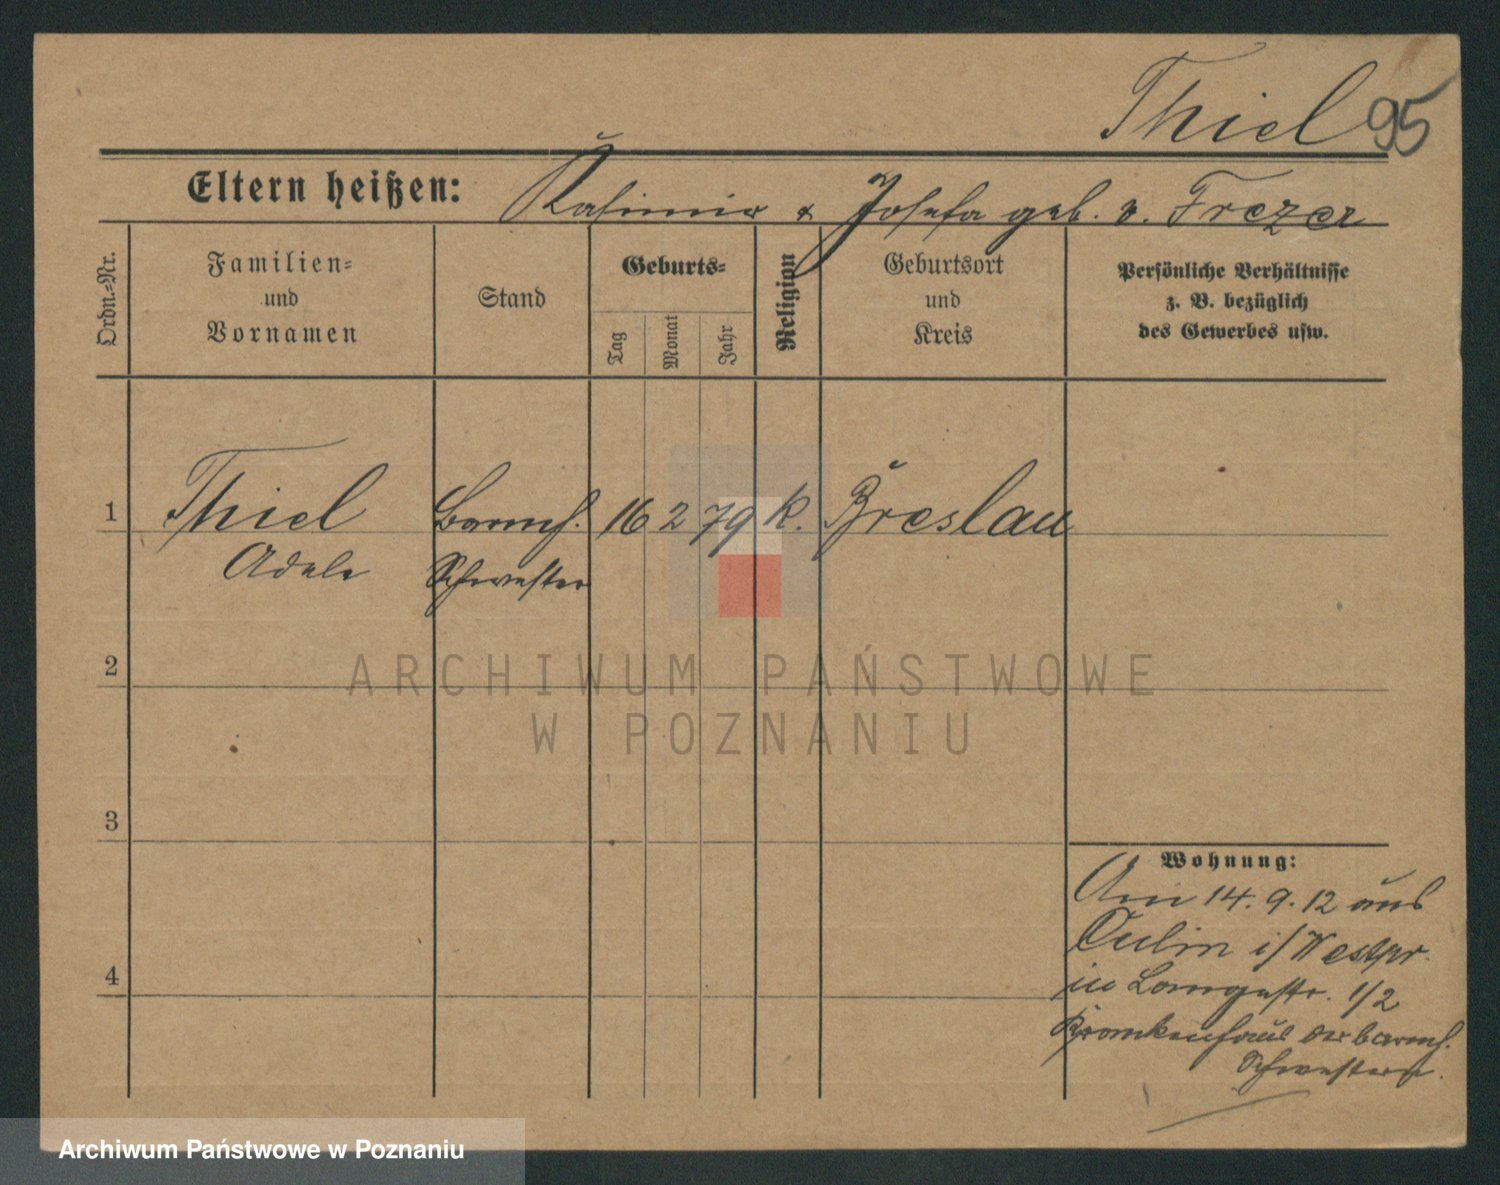 Thiel 95
Eltern heißen: Kasimir & Josefa geb. v. Frezer
Ordn.-Nr.
Familien-
und
Vornamen
Stand
Geburts-
Tag
Monat
Jahr
Religion
Geburtsort
und
Kreis
Persönliche Verhältnisse
z. B. bezüglich
des Gewerbes usw.
1 Thiel Barmh. 16 2 79 k. Breslau
Adele Schwester
2
ARCHIWUM PAŃSTWOWE
W POZNANIU
3
Wohnung:
Am 14. 9. 12 aus
Culm i/Westpr.
in Langestr. 1/2
4
Krankenhaus der barmh.
Schwestern.
Archiwum Państwowe w Poznaniu